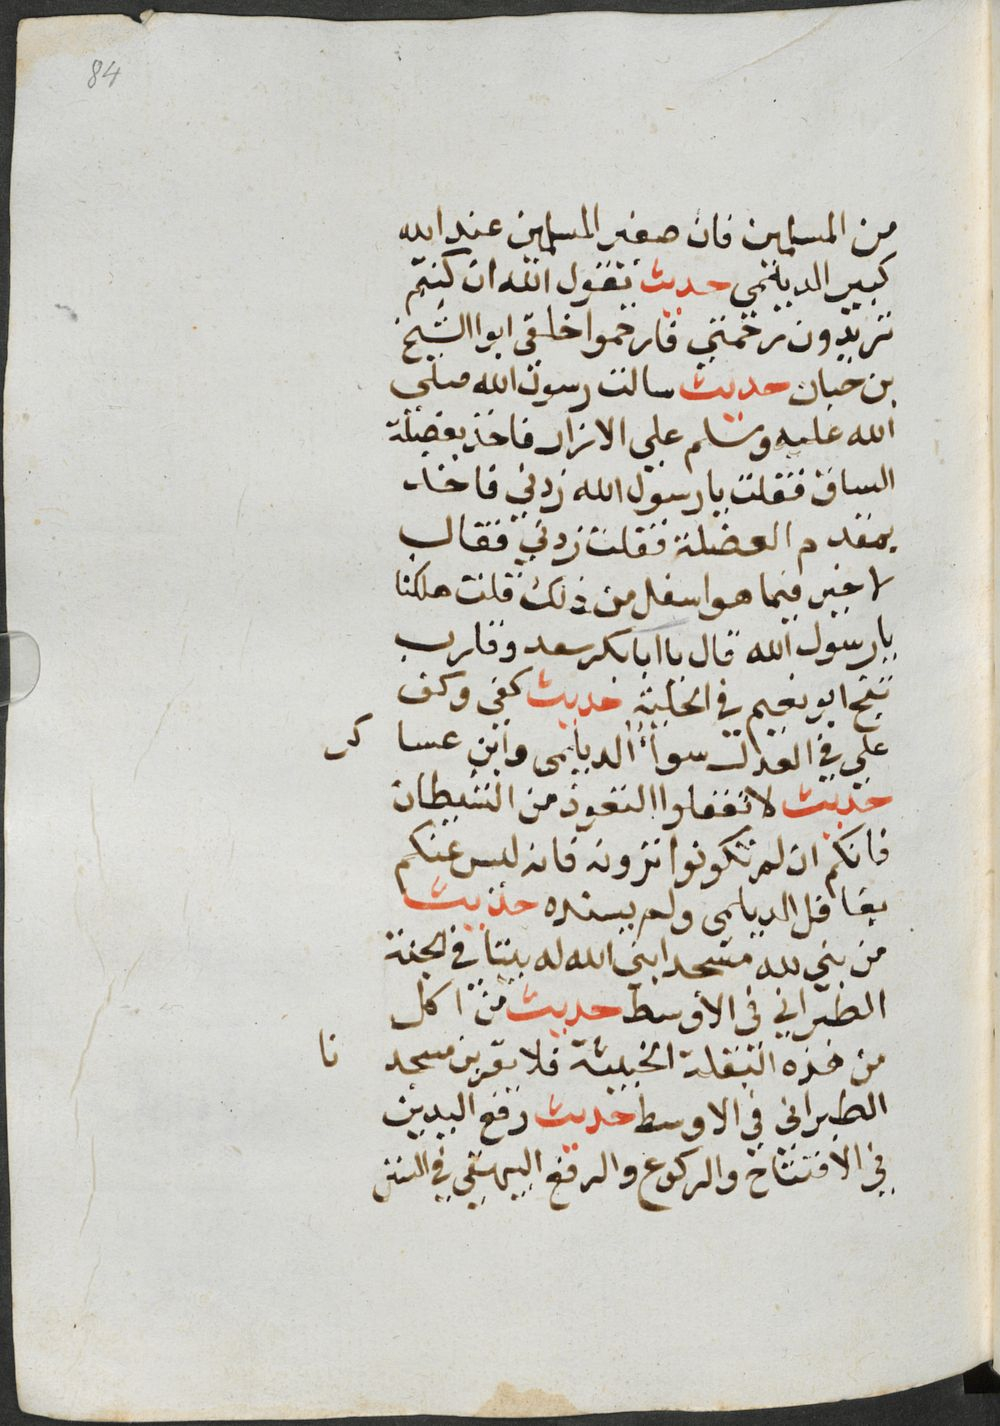 84
من المسلمين فان صغير المسلمين عند الله
كبير الديلمي حديث يقول الله ان كنتم
تريدون رحمتي فارحموا خلقي ابوا الشيخ
بن حبان حديث سالت رسول الله صلى
الله عليه وسلم على الازار فاخذ بعضلة
الساق فقلت يا رسول الله زدني فاخذ
بمقدم العضلة فقلت زدني فقال
لا خير فيما هو اسفل من ذلك قلت هلكنا
يا رسول الله قال يا ابا بكر سعد وقارب
تنج ابو نعيم في الحلية حديث كفى وكف
على في العدل سواء الديلمى وابن عساكر
حديث لا تغفلوا التعوذ من الشيطان
فانكم ان لم تكونوا ترونه فانه ليس عنكم
بغافل الديلمى ولم يسنده حديث
من بنى لله مسجدا بنى الله له بيتا في الجنة
الطبراني في الاوسط حديث من اكل
من هذه البقلة الخبيثة فلا يقربن مسجدنا
الطبراني في الاوسط حديث رفع اليدين
في الافتتاح والركوع والرفع البيهقي في السنن